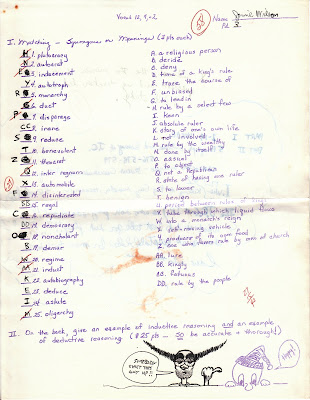 Vocab 12, 9, +2
Name
Pd. 3
I. Matching - Synonyms or Meanings (2 pts each)
1. plutocracy
2. autocrat
3. inducement
4. autotroph
5. monarchy
6. duct
7. disparage
8. inane
9. reduce
10. benevolent
11. theocrat
12. inter regnum
13. automobile
14. disinterested
15. regal
16. repudiate
17. democracy
18. nonchalant
19. demur
20. regime
21. induct
22. autobiography
23. deduce
24. astute
25. oligarchy
A. a religious person
B. deride
C. deny
D. time of a king's rule
E. trace the source of
F. unbiased
G. to lead in
H. rule by a select few
I. keen
J. absolute ruler
K. story of one's own life
L. not involved
M. rule by the wealthy
N. done by itself
O. casual
P. to object
Q. not a republican
R. state of having one ruler
S. to lower
T. benign
U. period between rules of king
V. tube through which liquid flows
W. into a monarch's reign
X. self-moving vehicle
Y. producer of its own food
Z. one who favors rule by arm of church
AA. lure
BB. kingly
CC. fatuous
DD. rule by the people
II. On the back, give an example of inductive reasoning and an example
of deductive reasoning (@ 25 pts - SO be accurate + thorough!)
SOMEBODY
SHUT THIS
GUY UP!!